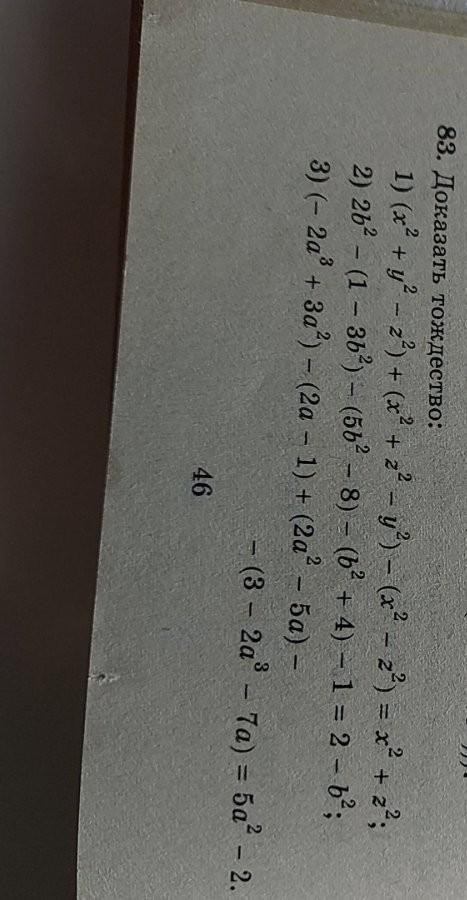 83. Доказать тождество:
1) (x² + y² − z²) + (x² + z² − y²) − (x² − z²) = x² + z²;
2) 2b² − (1 − 3b²) − (5b² − 8) − (b² + 4) − 1 = 2 − b²;
3) (− 2a³ + 3a²) − (2a − 1) + (2a² − 5a) −
− (3 − 2a³ − 7a) = 5a² − 2.
46